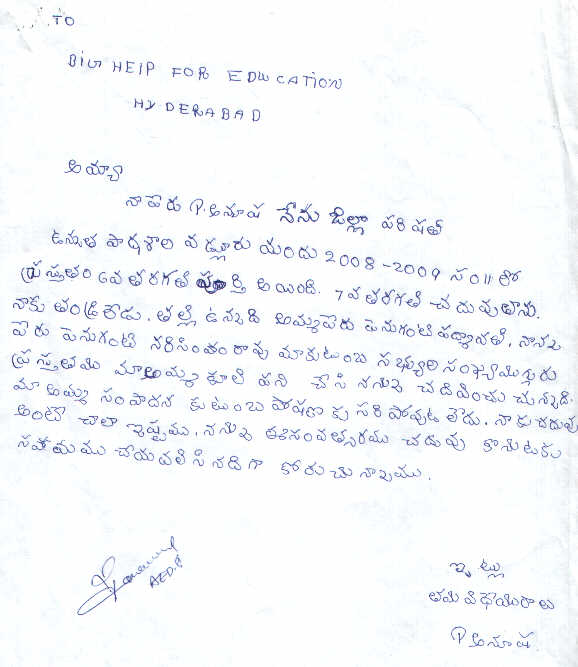 TO
BIG HELP FOR EDUCATION
HYDERABAD
అయ్యా
నా పేరు P.అనూష నేను జిల్లా పరిషత్
ఉన్నత పాఠశాల వడ్లూరు యందు 2008-2009 సం॥లో
ప్రస్తుతం 6వ తరగతి పూర్తి అయింది. 7వ తరగతి చదువుతాను.
నాకు తండ్రి లేడు. తల్లి ఉన్నది అమ్మపేరు పెనుగంటి పద్మావతి, నాన్న
పేరు పెనుగంటి నరిసింహరావు మా కుటుంబ సభ్యుల సంఖ్య ముగ్గురు
ప్రస్తుతము మా అమ్మ కూలి పని చేసి నన్ను చదివించు చున్నది.
మా అమ్మ సంపాదన కుటుంబ పోషణకు సరిపోవుట లేదు. నాకు చదువు
అంటే చాలా ఇష్టము. నన్ను ఈ సంవత్సరము చదువు కొనుటకు
సహాయము చేయవలసినదిగా కోరుచున్నాము.
ఇట్లు
తమ విధేయురాలు
P అనూష